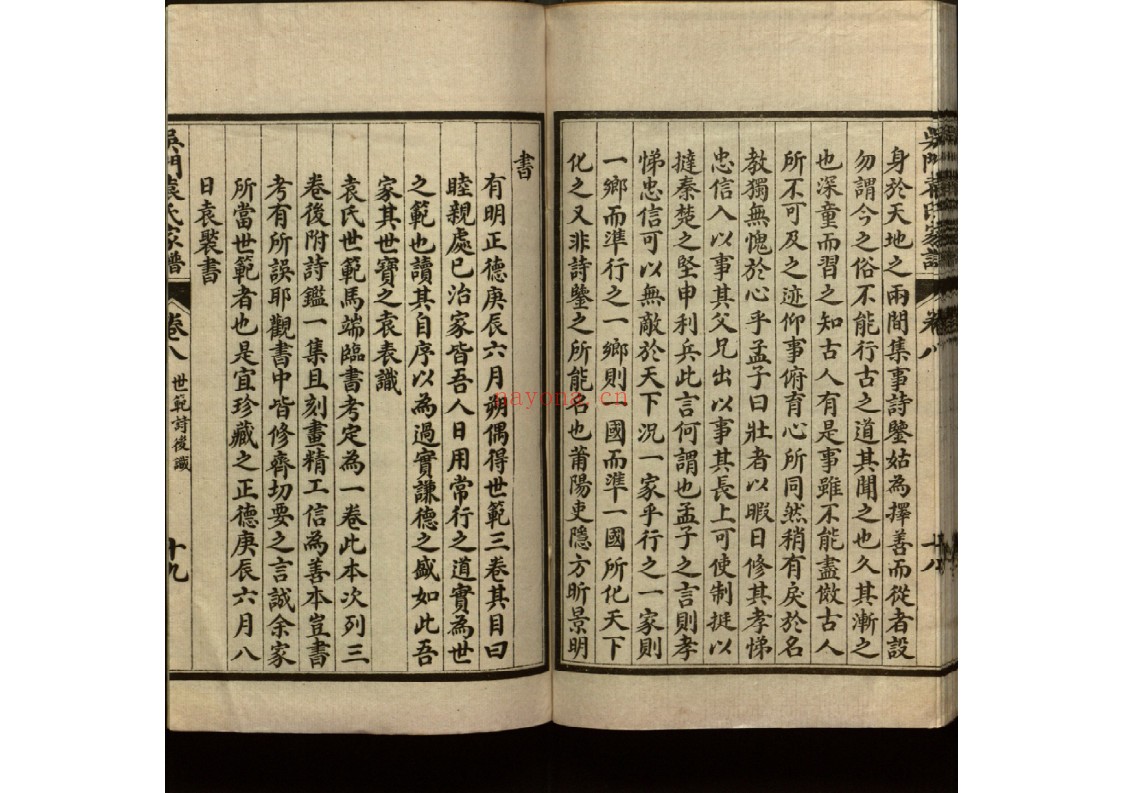 吳門袁氏家譜 卷八 十八
身於天地之兩間集事詩鑒姑為擇善而從者設
勿謂今之俗不能行古之道其聞之也久其漸之
也深童而習之知古人有是事雖不能盡倣古人
所不可及之迹仰事俯育心所同然稍有戾於名
教獨無愧於心乎孟子曰壯者以暇日修其孝悌
忠信入以事其父兄出以事其長上可使制挺以
撻秦楚之堅甲利兵此言何謂也孟子之言則孝
悌忠信可以無敵於天下況一家乎行之一家則
一鄉而準行之一鄉則一國而準一國所化天下
化之又非詩鑒之所能名也莆陽吏隱方昕景明
書
有明正德庚辰六月朔偶得世範三卷其目曰
睦親處己治家皆吾人日用常行之道實為世
之範也讀其自序以為過實謙德之盛如此吾
家其世寶之袁表識
袁氏世範馬端臨書考定為一卷此本次列三
卷後附詩鑑一集且刻畫精工信為善本豈書
考有所誤耶觀書中皆修齊切要之言誠余家
所當世範者也是宜珍藏之正德庚辰六月八
日袁褧書
吳門袁氏家譜 卷八 世範詩後識 十九
nayona.cn